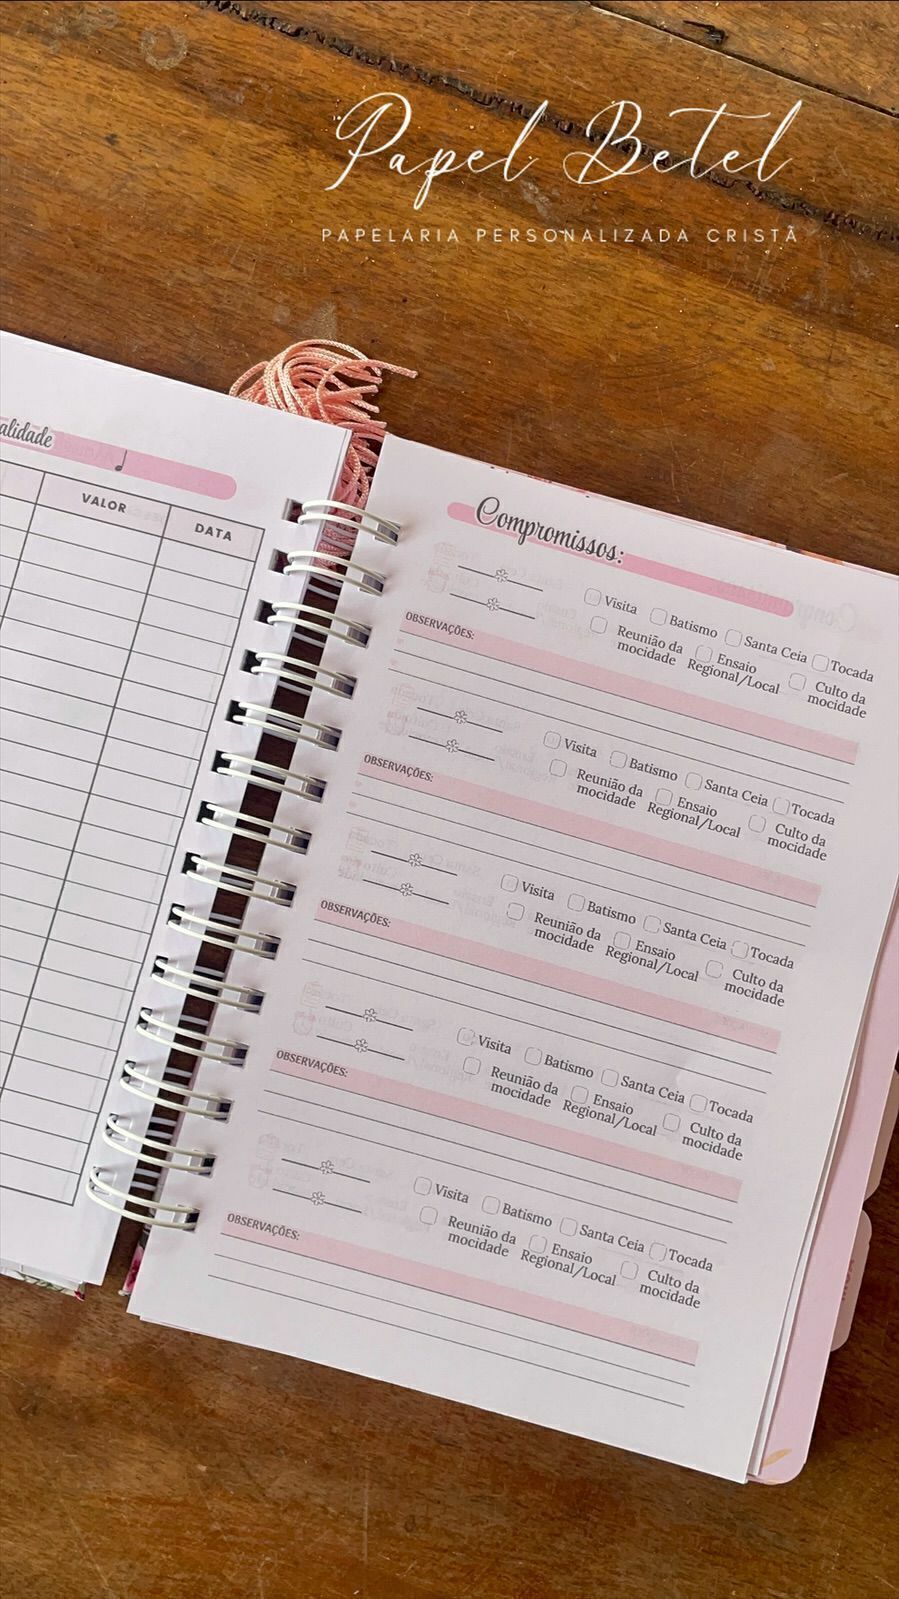 Papel Betel
PAPELARIA PERSONALIZADA CRISTÃ
alidade
VALOR DATA
Compromissos:
Visita Batismo Santa Ceia Tocada
Reunião da mocidade Ensaio Regional/Local Culto da mocidade
OBSERVAÇÕES:
Visita Batismo Santa Ceia Tocada
Reunião da mocidade Ensaio Regional/Local Culto da mocidade
OBSERVAÇÕES:
Visita Batismo Santa Ceia Tocada
Reunião da mocidade Ensaio Regional/Local Culto da mocidade
OBSERVAÇÕES:
Visita Batismo Santa Ceia Tocada
Reunião da mocidade Ensaio Regional/Local Culto da mocidade
OBSERVAÇÕES:
Visita Batismo Santa Ceia Tocada
Reunião da mocidade Ensaio Regional/Local Culto da mocidade
OBSERVAÇÕES: